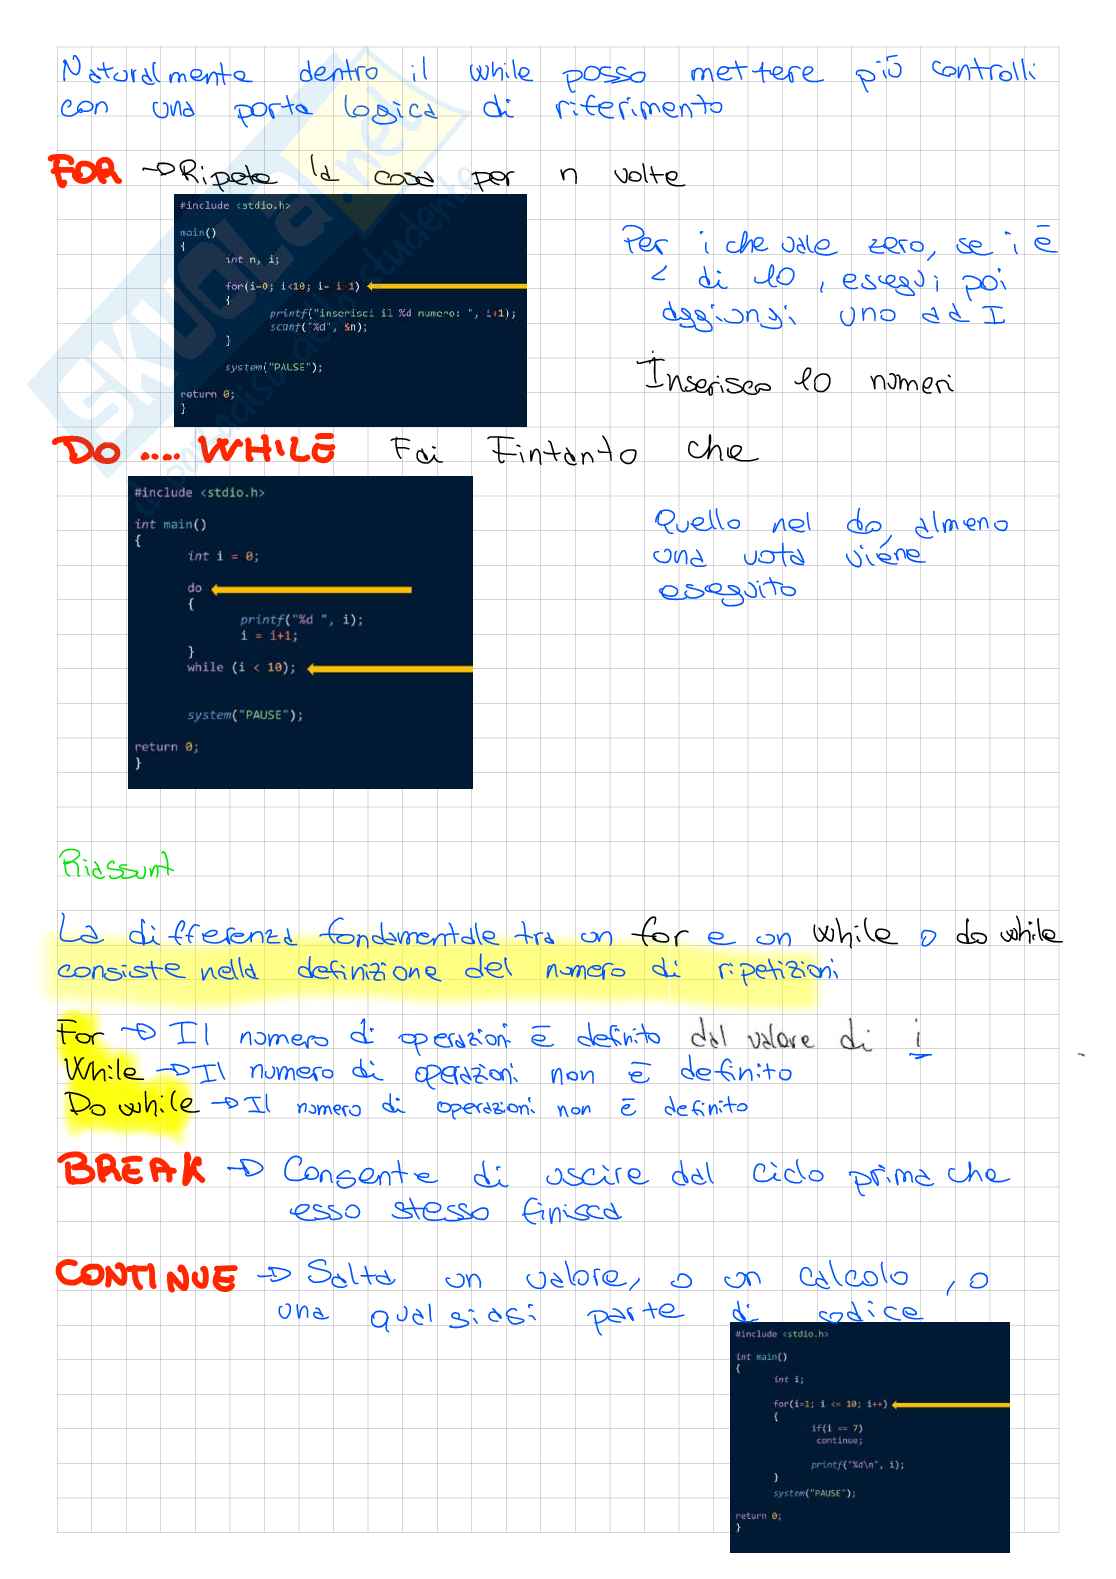 Naturalmente dentro il while posso mettere più controlli
con una porta logica di riferimento
FOR → Ripete la cosa per n volte
#include <stdio.h>
main()
{
int n, i;
for(i=0; i<10; i= i+1)
{
printf("inserisci il %d numero: ", i+1);
scanf("%d", &n);
}
system("PAUSE");
return 0;
}
Per i che vale zero, se i è
< di 10, esegui poi
aggiungi uno ad I
Inserisco 10 numeri
DO .... WHILE Fai Fintanto che
#include <stdio.h>
int main()
{
int i = 0;
do
{
printf("%d ", i);
i = i+1;
}
while (i < 10);
system("PAUSE");
return 0;
}
Quello nel do, almeno
una vota viene
eseguito
Riassunt
La differenza fondamentale tra un for e un while o do while
consiste nella definizione del numero di ripetizioni
For → Il numero di operazioni è definito dal valore di i
While → Il numero di operazioni non è definito
Do while → Il numero di operazioni non è definito
BREAK → Consente di uscire dal ciclo prima che
esso stesso finisca
CONTINUE → Salta un valore, o un calcolo, o
una qualsiasi parte di codice
#include <stdio.h>
int main()
{
int i;
for(i=1; i <= 10; i++)
{
if(i == 7)
continue;
printf("%d\n", i);
}
system("PAUSE");
return 0;
}
SKUOLA.net